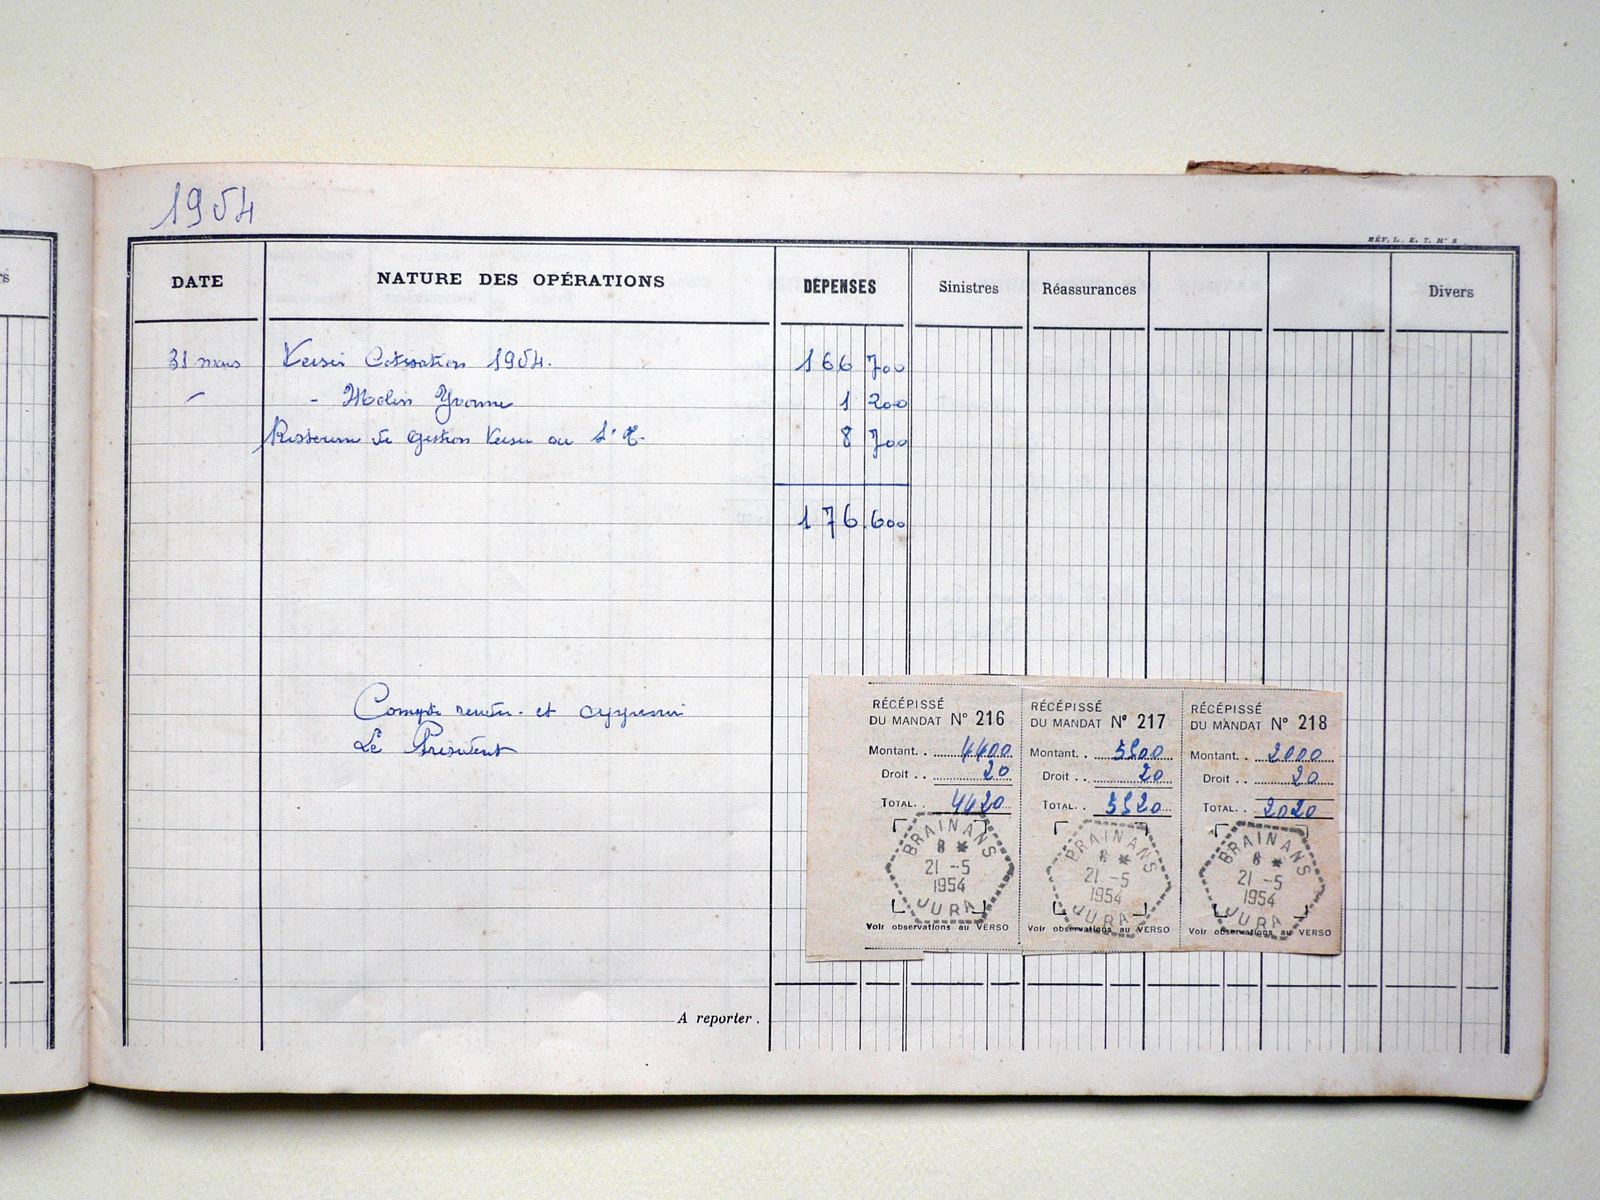 rs
1954
RÉF. L. E. T. N° 8
DATE NATURE DES OPÉRATIONS DÉPENSES Sinistres Réassurances Divers
31 mars Versé Cotisation 1954. 166 700
- Molin Yvonne 1 200
Ristourne de gestion Versé au 8 700
176.600
Compte rendu et approuvé
Le Président
RÉCÉPISSÉ
DU MANDAT N° 216
Montant. . 4400
Droit . . 20
TOTAL. . 4420
BRAINANS
21 -5
1954
JURA
Voir observations au VERSO
RÉCÉPISSÉ
DU MANDAT N° 217
Montant. . 5500
Droit . . 20
TOTAL. . 5520
BRAINANS
21 -5
1954
JURA
Voir observations au VERSO
RÉCÉPISSÉ
DU MANDAT N° 218
Montant. . 2000
Droit . . 20
TOTAL. . 2020
BRAINANS
21 -5
1954
JURA
Voir observations au VERSO
A reporter .